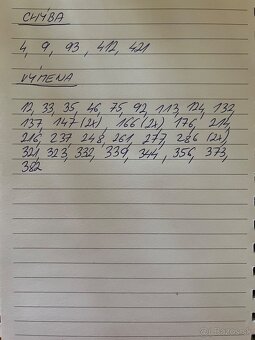 CHÝBA
4, 9, 93, 412, 421
VÝMENA
12, 33, 35, 46, 75, 92, 113, 124, 132,
137, 147 (2x), 166 (2x), 176, 214,
216, 237, 248, 261, 277, 286 (2x),
321, 323, 332, 339, 344, 356, 373,
382